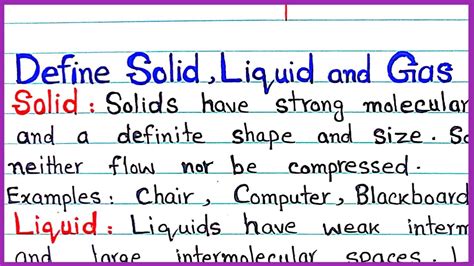 Define Solid, Liquid and Gas
Solid : Solids have strong molecular
and a definite shape and size. So
neither flow nor be compressed.
Examples: Chair, Computer, Blackboard
Liquid: Liquids have weak interm
and large intermolecular spaces. L